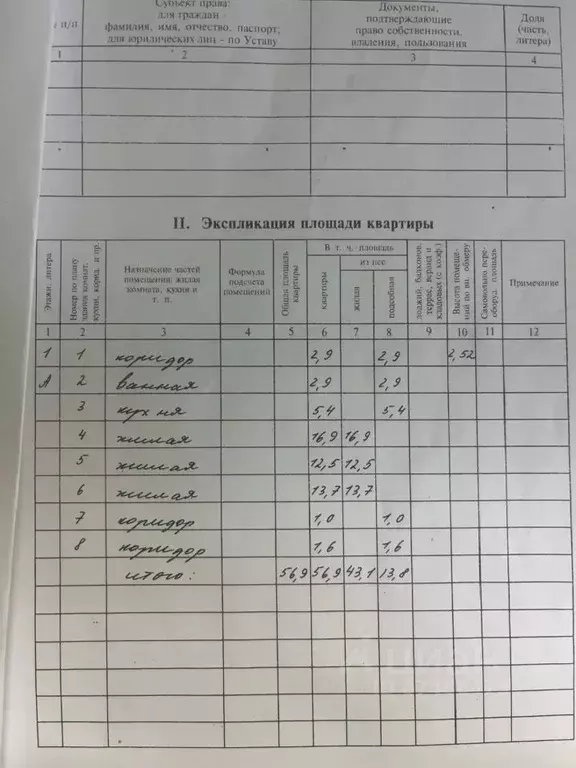 Субъект права:
для граждан -
фамилия, имя, отчество, паспорт;
для юридических лиц - по Уставу
Документы,
подтверждающие
право собственности,
владения, пользования
Доля
(часть,
литера)
п/п
1 2 3 4
II. Экспликация площади квартиры
Этажи, литера
Номер по плану
кухни, корид. и пр.
Назначение частей
помещения: жилая
комната, кухня и
т. п.
Формула
подсчета
помещений
Общая площадь
квартиры
В т. ч. площадь
квартиры
из нее
жилая
подсобная
лоджий, балконов
террас, веранд и
кладовых (с коэф.)
Высота помеще-
ний по вн. обмеру
Самовольно пере-
оборуд. площадь
Примечание
1 2 3 4 5 6 7 8 9 10 11 12
1 1 коридор 2,9 2,9 2,52
А 2 ванная 2,9 2,9
3 кухня 5,4 5,4
4 жилая 16,9 16,9
5 жилая 12,5 12,5
6 жилая 13,7 13,7
7 коридор 1,0 1,0
8 коридор 1,6 1,6
итого: 56,9 56,9 43,1 13,8